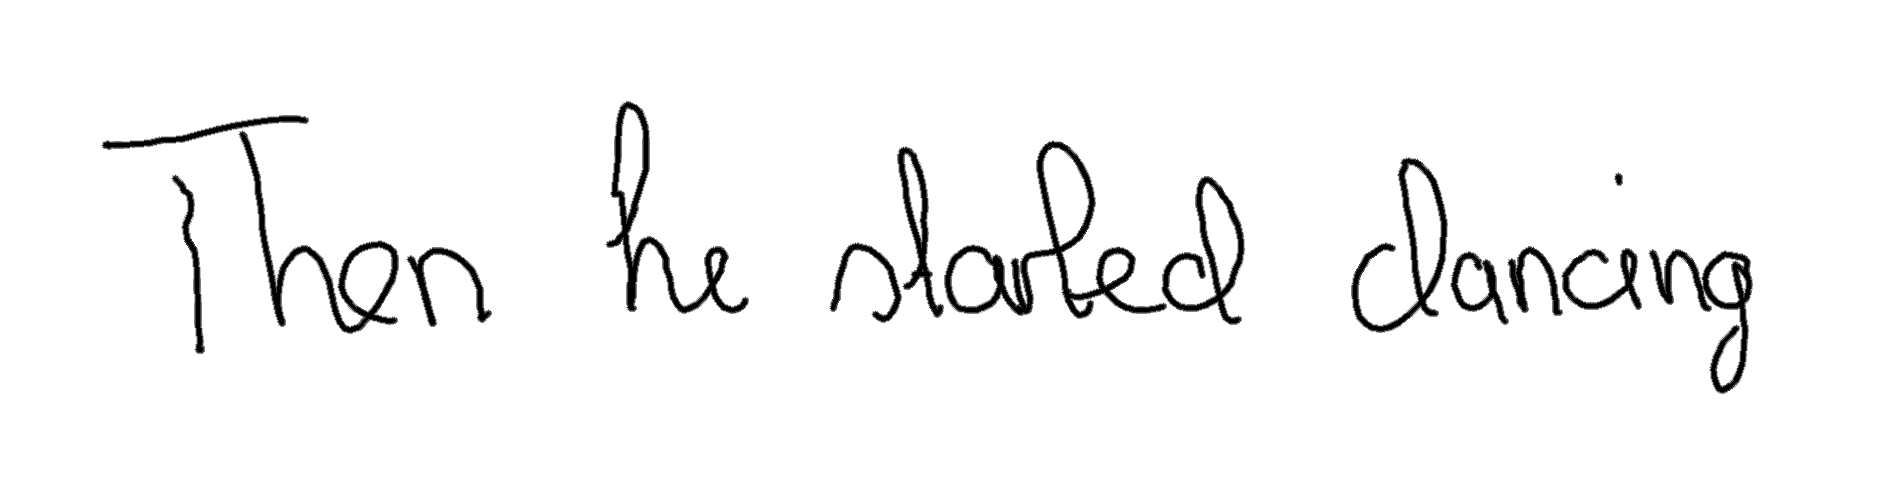 Then he started dancing